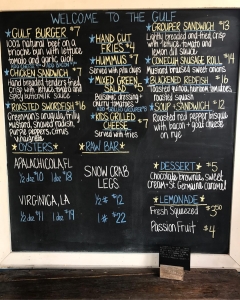 WELCOME TO THE GULF
GULF BURGER $7
100% natural beef on a
brioche bun with lettuce
tomato and garlic aioli
CHICKEN SANDWICH $7
Hand breaded tenders fried
crisp with lettuce and
spicy comeback sauce
ROASTED SWORDFISH $16
Greenman's arugula, fruity
mustard, shaved radish,
purple peppers, citrus
vinaigrette
HAND CUT
FRIES $4
HUMMUS $7
Served with pita chips
MIXED GREEN
SALAD $5
Balsamic dressing +
cherry tomatoes
KIDS GRILLED
CHEESE $7
Served with fries
GROUPER SANDWICH $13
Lightly breaded and fried, crisp
with lettuce, tomato and
lemon dill sauce
CONECUH SAUSAGE ROLL $4
Mustard braised sweet onions
BLACKENED REDFISH $16
Toasted quinoa, heirloom tomatoes,
roasted squash
SOUP + SANDWICH $12
Roasted red pepper bisque
with bacon + goat cheese
on rye
OYSTERS
APALACHICOLA, FL
1/2 doz $10 1 doz $18
VIRGINIA, LA
1/2 doz $11 1 doz $19
RAW BAR
SNOW CRAB
LEGS
1/2 # $12
1 # $22
DESSERT $5
Chocolate brownie, sweet
cream + St. Germaine caramel
LEMONADE
Fresh Squeezed $3.50
Passion Fruit $4